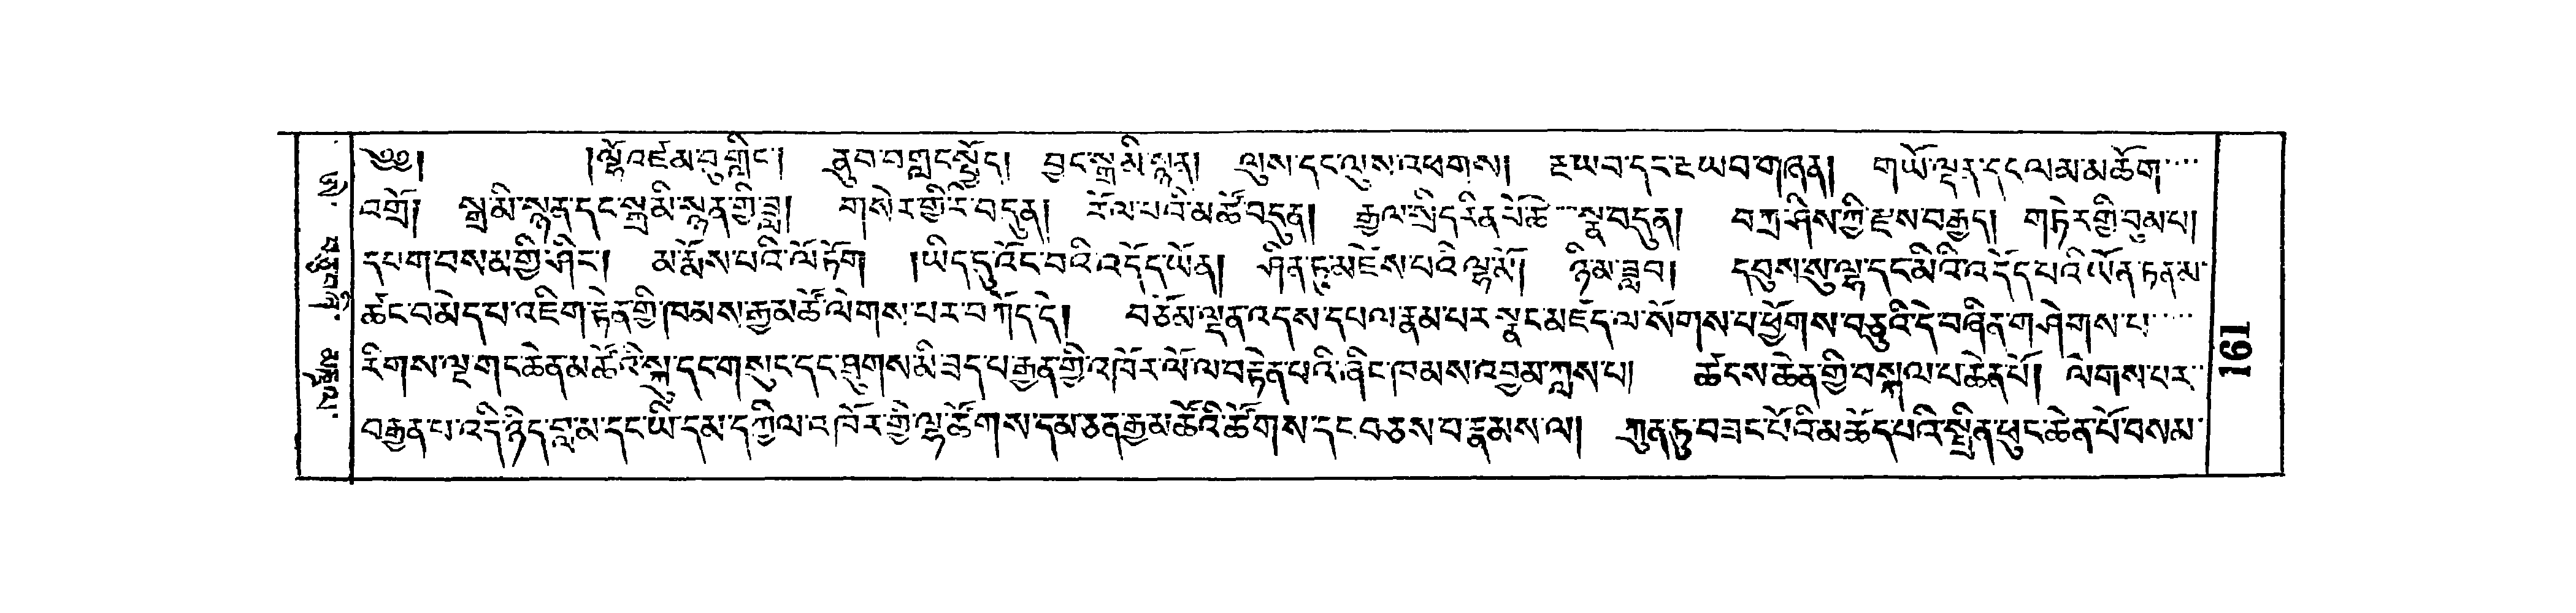 ༄༅། །ལྷོ་འཛམ་བུ་གླིང་། ནུབ་བ་གླང་སྤྱོད། བྱང་སྒྲ་མི་སྙན། ལུས་དང་ལུས་འཕགས། རྔ་ཡབ་དང་རྔ་ཡབ་གཞན། གཡོ་ལྡན་དང་ལམ་མཆོག་
འགྲོ། སྒྲ་མི་སྙན་དང་སྒྲ་མི་སྙན་གྱི་ཟླ། གསེར་གྱི་རི་བདུན། རོལ་པའི་མཚོ་བདུན། རྒྱལ་སྲིད་རིན་པོ་ཆེ་སྣ་བདུན། བཀྲ་ཤིས་ཀྱི་རྫས་བརྒྱད། གཏེར་གྱི་བུམ་པ།
དཔག་བསམ་གྱི་ཤིང་། མ་རྨོས་པའི་ལོ་ཏོག །ཡིད་དུ་འོང་བའི་འདོད་ཡོན། ཤིན་ཏུ་མཛེས་པའི་ལྷ་མོ། ཉི་མ་ཟླ་བ། དབུས་སུ་ལྷ་དང་མིའི་འདོད་པའི་ཡོན་ཏན་མ་
ཚང་བ་མེད་པ་འཇིག་རྟེན་གྱི་ཁམས་རྒྱ་མཚོ་ལེགས་པར་བཀོད་དེ། བཅོམ་ལྡན་འདས་དཔལ་རྣམ་པར་སྣང་མཛད་ལ་སོགས་པ་ཕྱོགས་བཅུའི་དེ་བཞིན་གཤེགས་པ་
རིགས་ལྔ་གང་ཆེན་མཚོའི་སྐུ་དང་གསུང་དང་ཐུགས་མི་ཟད་པ་རྒྱན་གྱི་འཁོར་ལོ་ལ་བརྟེན་པའི་ཞིང་ཁམས་འབྱམ་ཀླས་པ། ཚངས་ཆེན་གྱི་བསྐལ་པ་ཆེན་པོ། ལེགས་པར་
བརྒྱན་པ་འདི་ཉིད་བླ་མ་དང་ཡི་དམ་དཀྱིལ་འཁོར་གྱི་ལྷ་ཚོགས་དམ་ཅན་རྒྱ་མཚོའི་ཚོགས་དང་བཅས་པ་རྣམས་ལ། ཀུན་ཏུ་བཟང་པོའི་མཆོད་པའི་སྤྲིན་ཕུང་ཆེན་པོ་བསམ་
191